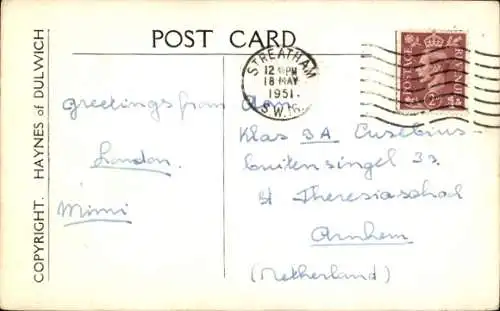 POST CARD
COPYRIGHT. HAYNES of DULWICH
STREATHAM
12 PM
18 MAY
1951.
S.W.16.
POSTAGE REVENUE
greetings from
London.
Mimi
Aan
Klas 3A Eusebius
buitensingel 33
St Theresiaschool
Arnhem
(Netherland)